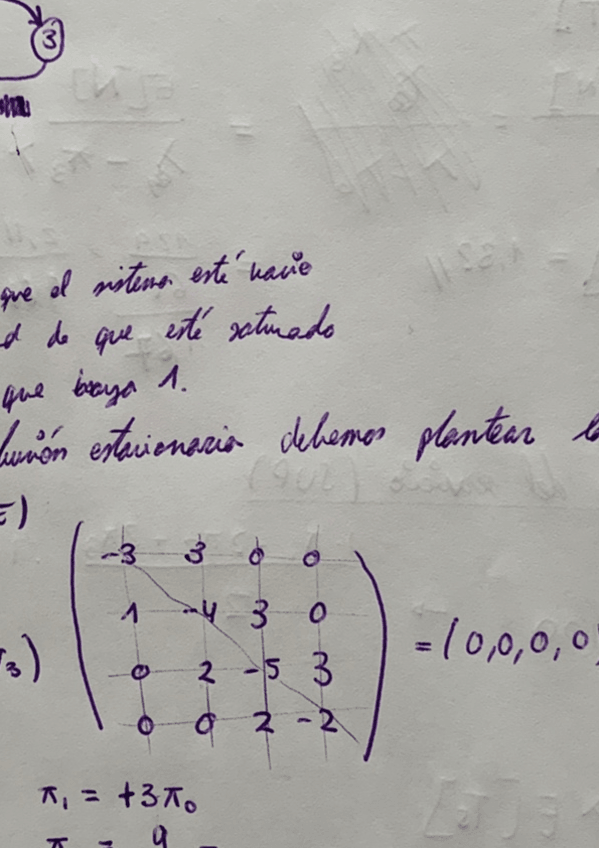 3
que el sistema esté vacío
d de que esté saturado
que haya 1.
bución estacionaria debemos plantear la
E)
-3 3 0 0
1 -4 3 0
π₃) 0 2 -5 3 = (0,0,0,0)
0 0 2 -2
π₁ = +3π₀